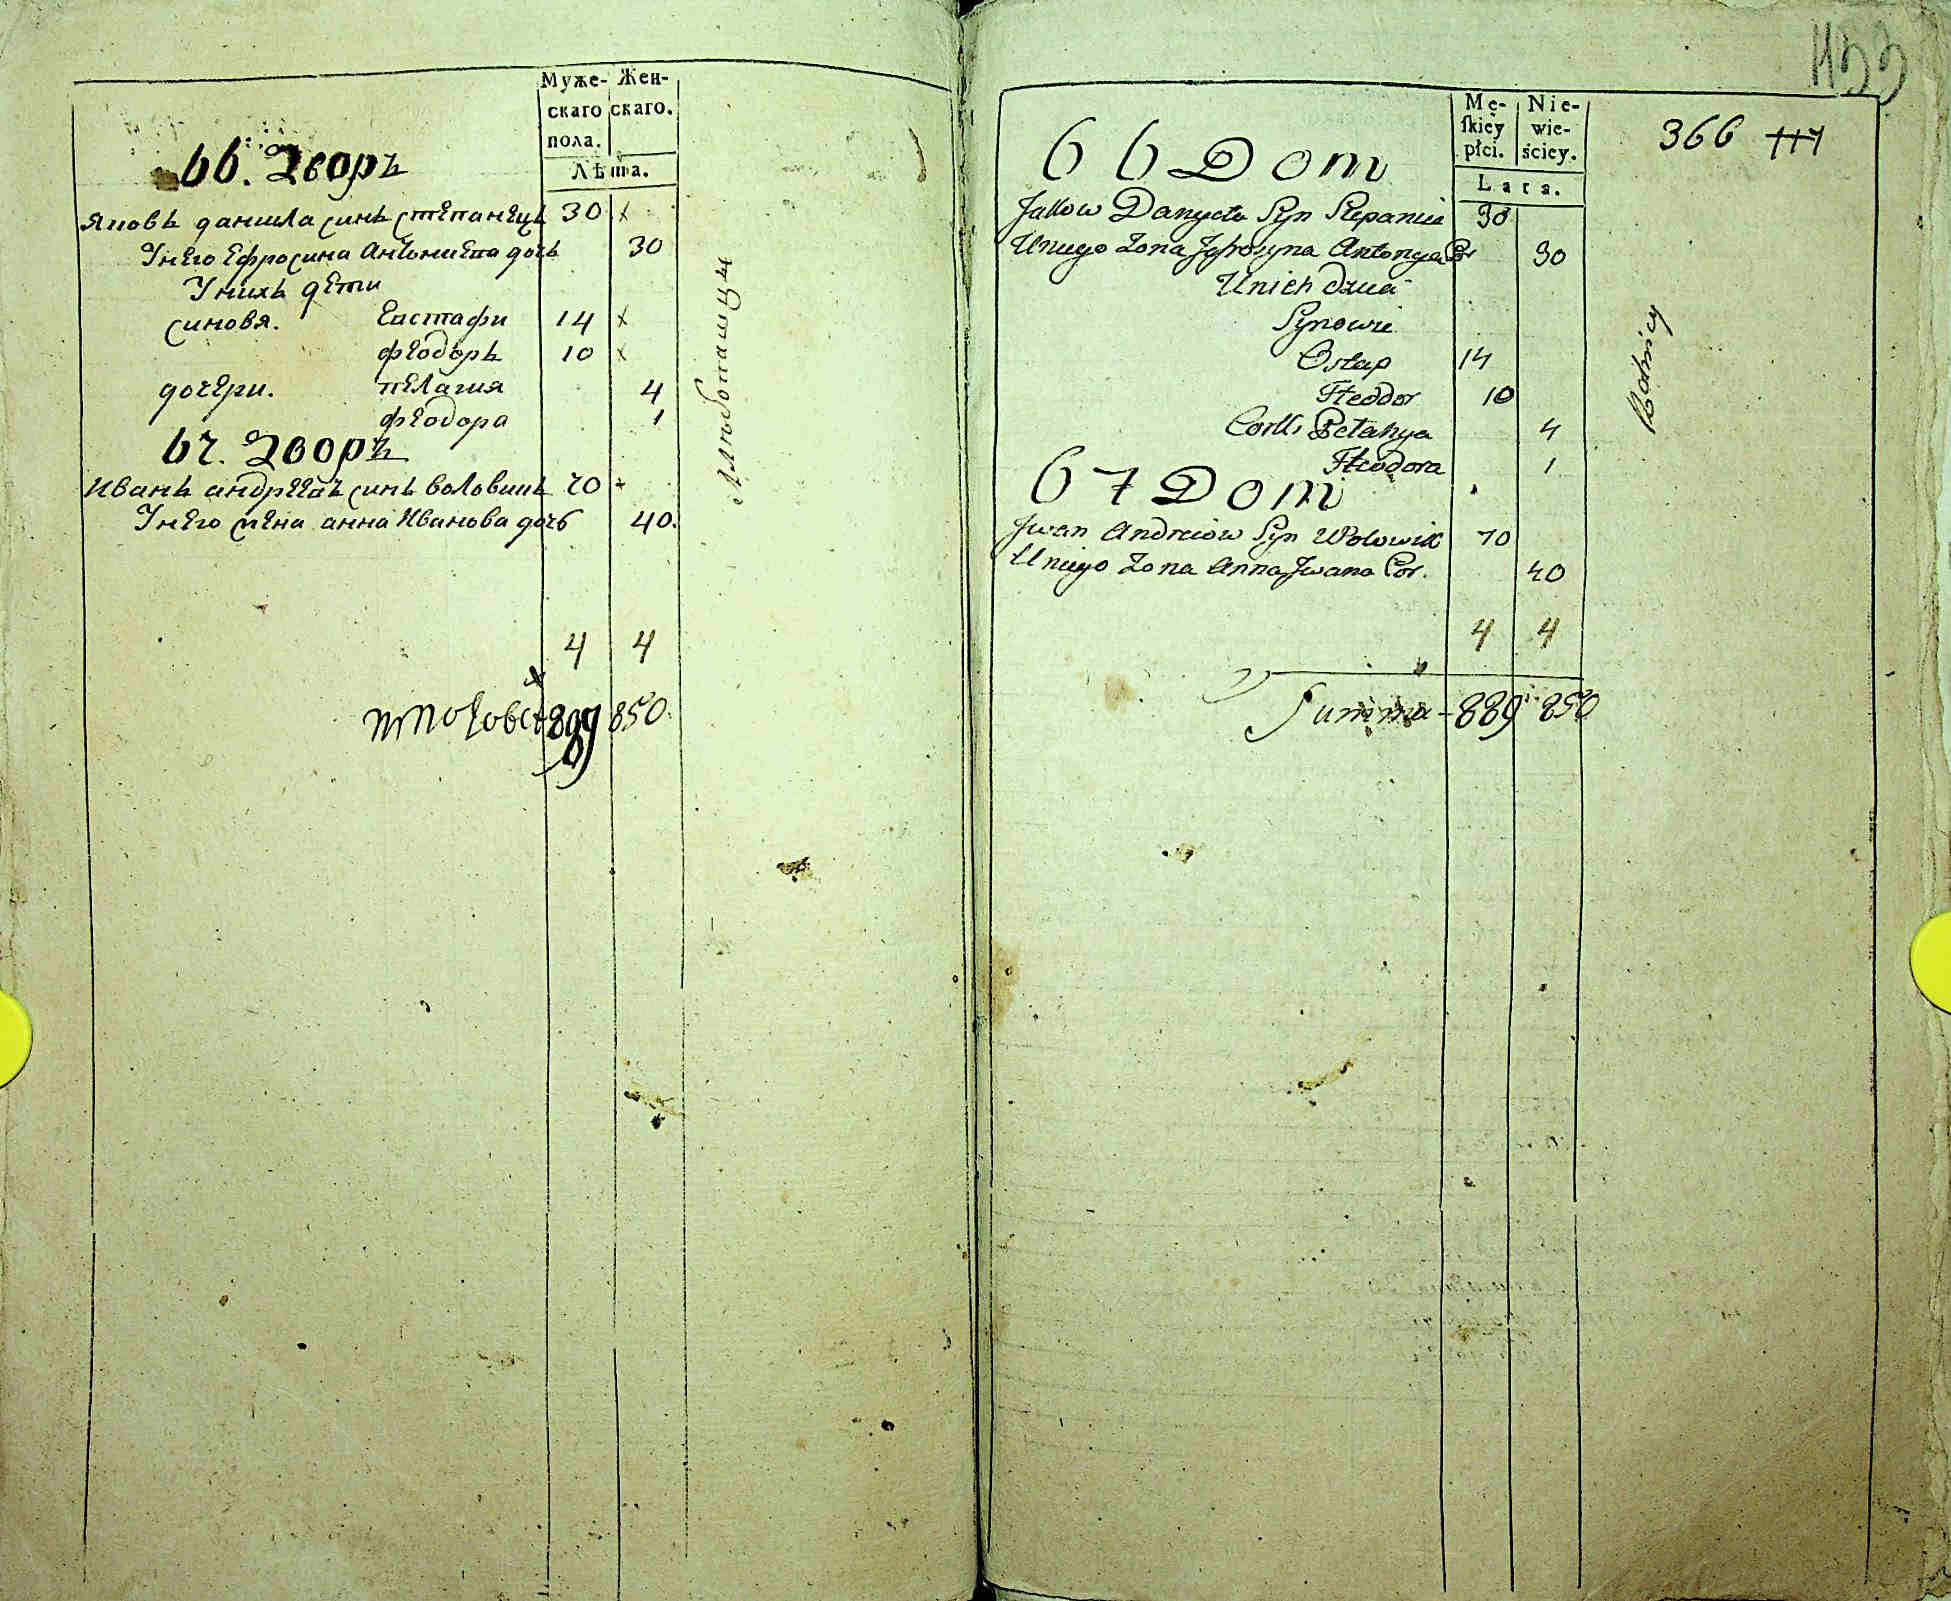 Муже-
скаго
пола.
Жен-
скаго.
Лѣта.
66. Дворъ
Яковъ данила синъ степанецъ 30 x
Унего Ефросина Антониева дочь 30
Унихъ дети
синовя. Евстафи 14 x
феодоръ 10 x
дочери. пелагия 4
феодора 1
67. Дворъ
Иванъ андреевъ синъ воловикъ 70 +
Унего жена анна Иванова дочь 40.
Хлѣбопашцы
4 4
889 850
1133
366
Mę-
ſkiey
płci.
Nie-
wie-
ściey.
Lata.
66 Dom
Jakow Danyeła Syn Stepaniec 30
Uniego Żona Jefrosyna Antonya Cór 30
Unich dzieci
Synowie
Ostap 14
Fteodor 10
Corki Pełahya 4
Fteodora 1
67 Dom
Jwan Andreiow Syn Wołowik 70
Uniego Żona Anna Jwana Cor. 40
Rolnicy
4 4
Summa - 889 850